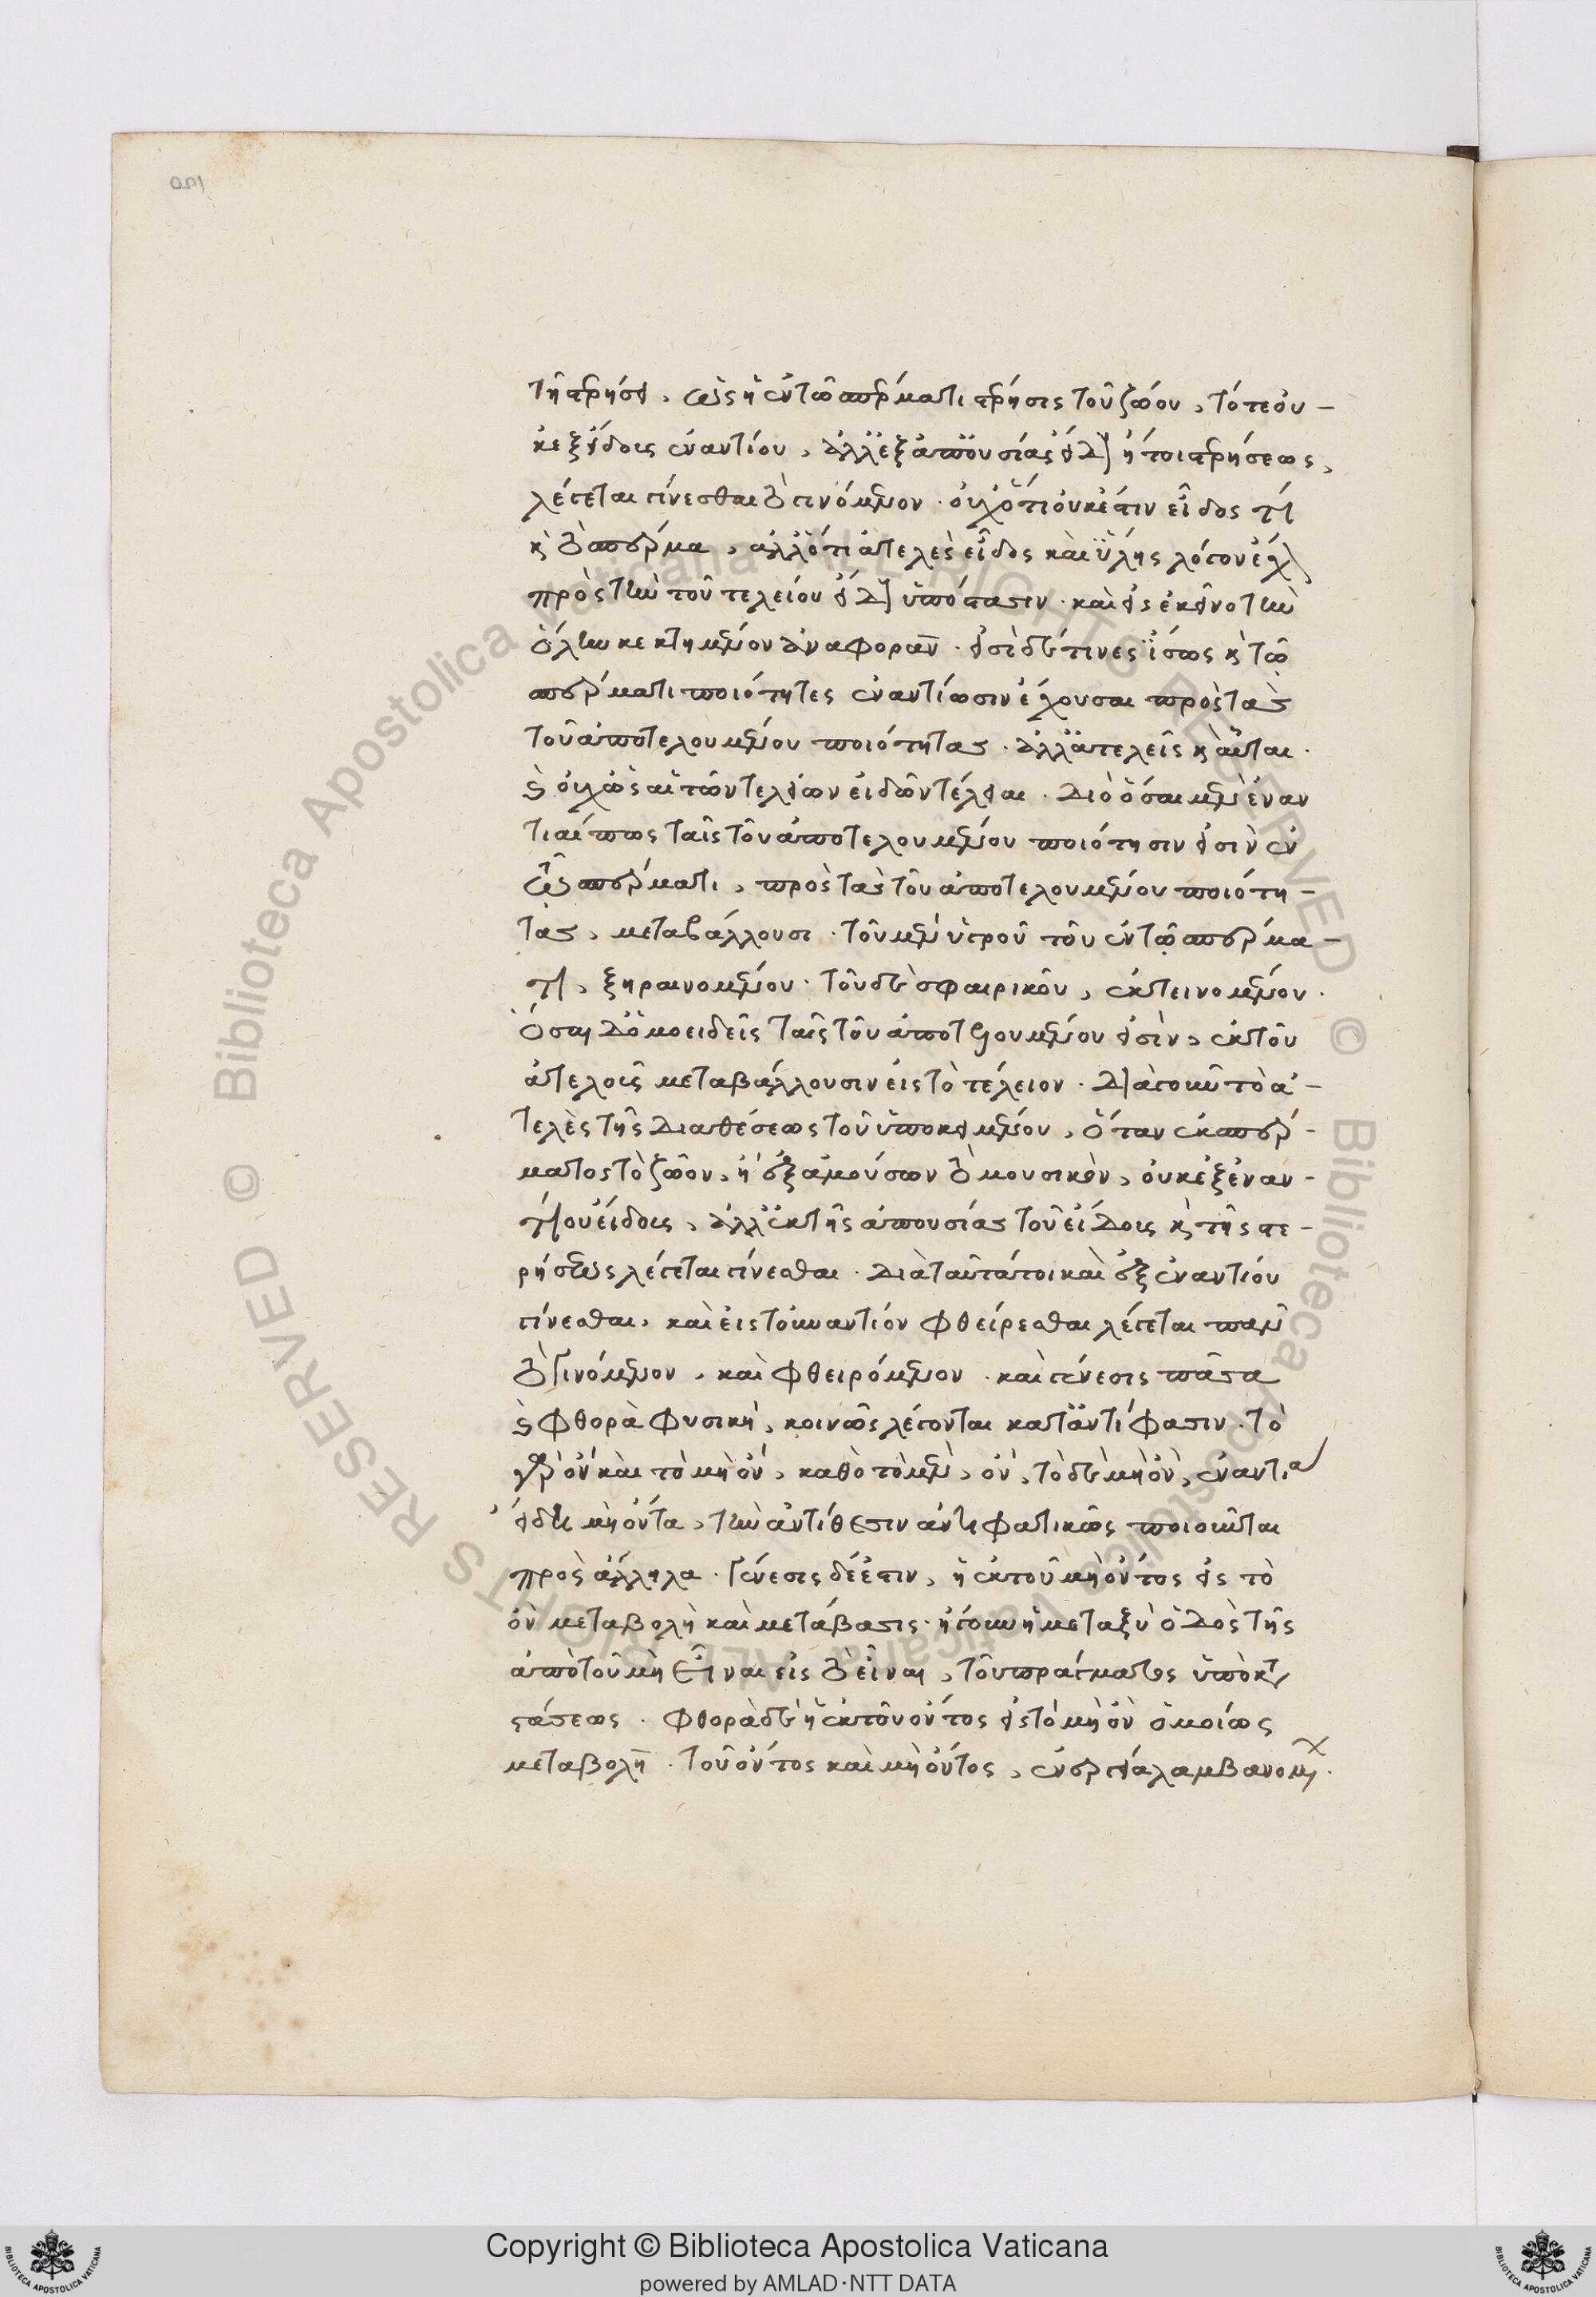 τῇ στερήσει, ὡς ἡ ἐν τῷ σπέρματι στέρησις τοῦ ζώου, τότε οὐ-
κ ἐξ εἴδους ἐναντίου, ἀλλ' ἐξ ἀπουσίας εἴδους ἤτοι στερήσεως,
λέγεται γίνεσθαι τὸ γινόμενον. οὐχ ὅτι οὐκ ἔστιν εἶδός τι
καὶ τὸ σπέρμα, ἀλλ' ὅτι ἀτελὲς εἶδος καὶ ὕλης λόγον ἔχει
πρὸς τὴν τοῦ τελείου εἴδους ὑπόστασιν. καὶ εἰς ἐκεῖνο τὴν
ὅλην κεκτημένον ἀναφοράν. εἰσὶ δέ τινες ἴσως καὶ τῷ
σπέρματι ποιότητες ἐναντίωσιν ἔχουσαι πρὸς τὰς
τοῦ ἀποτελουμένου ποιότητας. ἀλλ' ἀτελεῖς καὶ αὗται.
καὶ οὐχ ὡς αἱ τῶν τελείων εἰδῶν τέλειαι. Διὸ ὅσαι μὲν ἐναν
τίαι πως ταῖς τοῦ ἀποτελουμένου ποιότησιν εἰσὶν ἐν
τῷ σπέρματι, πρὸς τὰς τοῦ ἀποτελουμένου ποιότη-
τας, μεταβάλλουσι. τοῦ μὲν ὑγροῦ τοῦ ἐν τῷ σπέρμα-
τι, ξηραινομένου. τοῦ δὲ σφαιρικοῦ, ἐκτεινομένου.
Ὅσαι δ' ὁμοειδεῖς ταῖς τοῦ ἀποτελουμένου εἰσὶν, ἐκ τοῦ
ἀτελοῦς μεταβάλλουσιν εἰς τὸ τέλειον. Διὰ γοῦν τὸ ἀ-
τελὲς τῆς διαθέσεως τοῦ ὑποκειμένου, ὅταν ἐκ σπέρ-
ματος τὸ ζῶον, ἢ ἐξ ἀμούσων τὸ μουσικὸν, οὐκ ἐξ ἐναν-
τίου εἴδους, ἀλλ' ἐκ τῆς ἀπουσίας τοῦ εἴδους καὶ τῆς στε-
ρήσεως λέγεται γίνεσθαι. Διὰ ταῦτά τοι καὶ ἐξ ἐναντίου
γίνεσθαι, καὶ εἰς τοὐναντίον φθείρεσθαι λέγεται πᾶν
τὸ γινόμενον, καὶ φθειρόμενον. καὶ γένεσις πᾶσα
καὶ φθορὰ φυσικὴ, κοινῶς λέγονται κατ' ἀντίφασιν. τὸ
γὰρ ὂν καὶ τὸ μὴ ὂν, καθὸ τὸ μὲν, ὂν, τὸ δὲ μὴ ὂν, ἐναντία
εἴδη μὴ ὄντα, τὴν ἀντίθεσιν ἀντιφατικῶς ποιοῦνται
πρὸς ἄλληλα. Γένεσις δέ ἐστιν, ἡ ἐκ τοῦ μὴ ὄντος εἰς τὸ
ὂν μεταβολὴ καὶ μετάβασις. ἤγουν ἡ μεταξὺ ὁδὸς τῆς
ἀπὸ τοῦ μὴ εἶναι εἰς τὸ εἶναι, τοῦ πράγματος ὑποκατα
στάσεως. Φθορὰ δὲ ἡ ἐκ τοῦ ὄντος εἰς τὸ μὴ ὂν ὁμοίως
μεταβολή. τοῦ ὄντος καὶ μὴ ὄντος, λαμβανομεν.